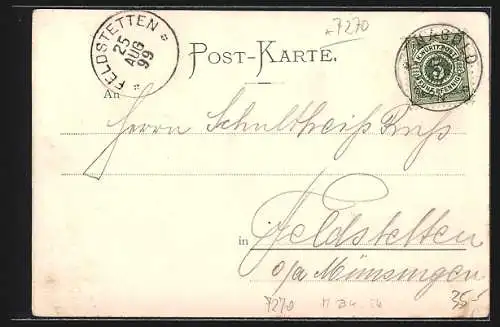 +7270
FELDSTETTEN
25
AUG
99
POST-KARTE.
NAGOLD
5
An
Herrn Schultheiß Ruß
in Feldstetten
o/a Münsingen
7270
35,-